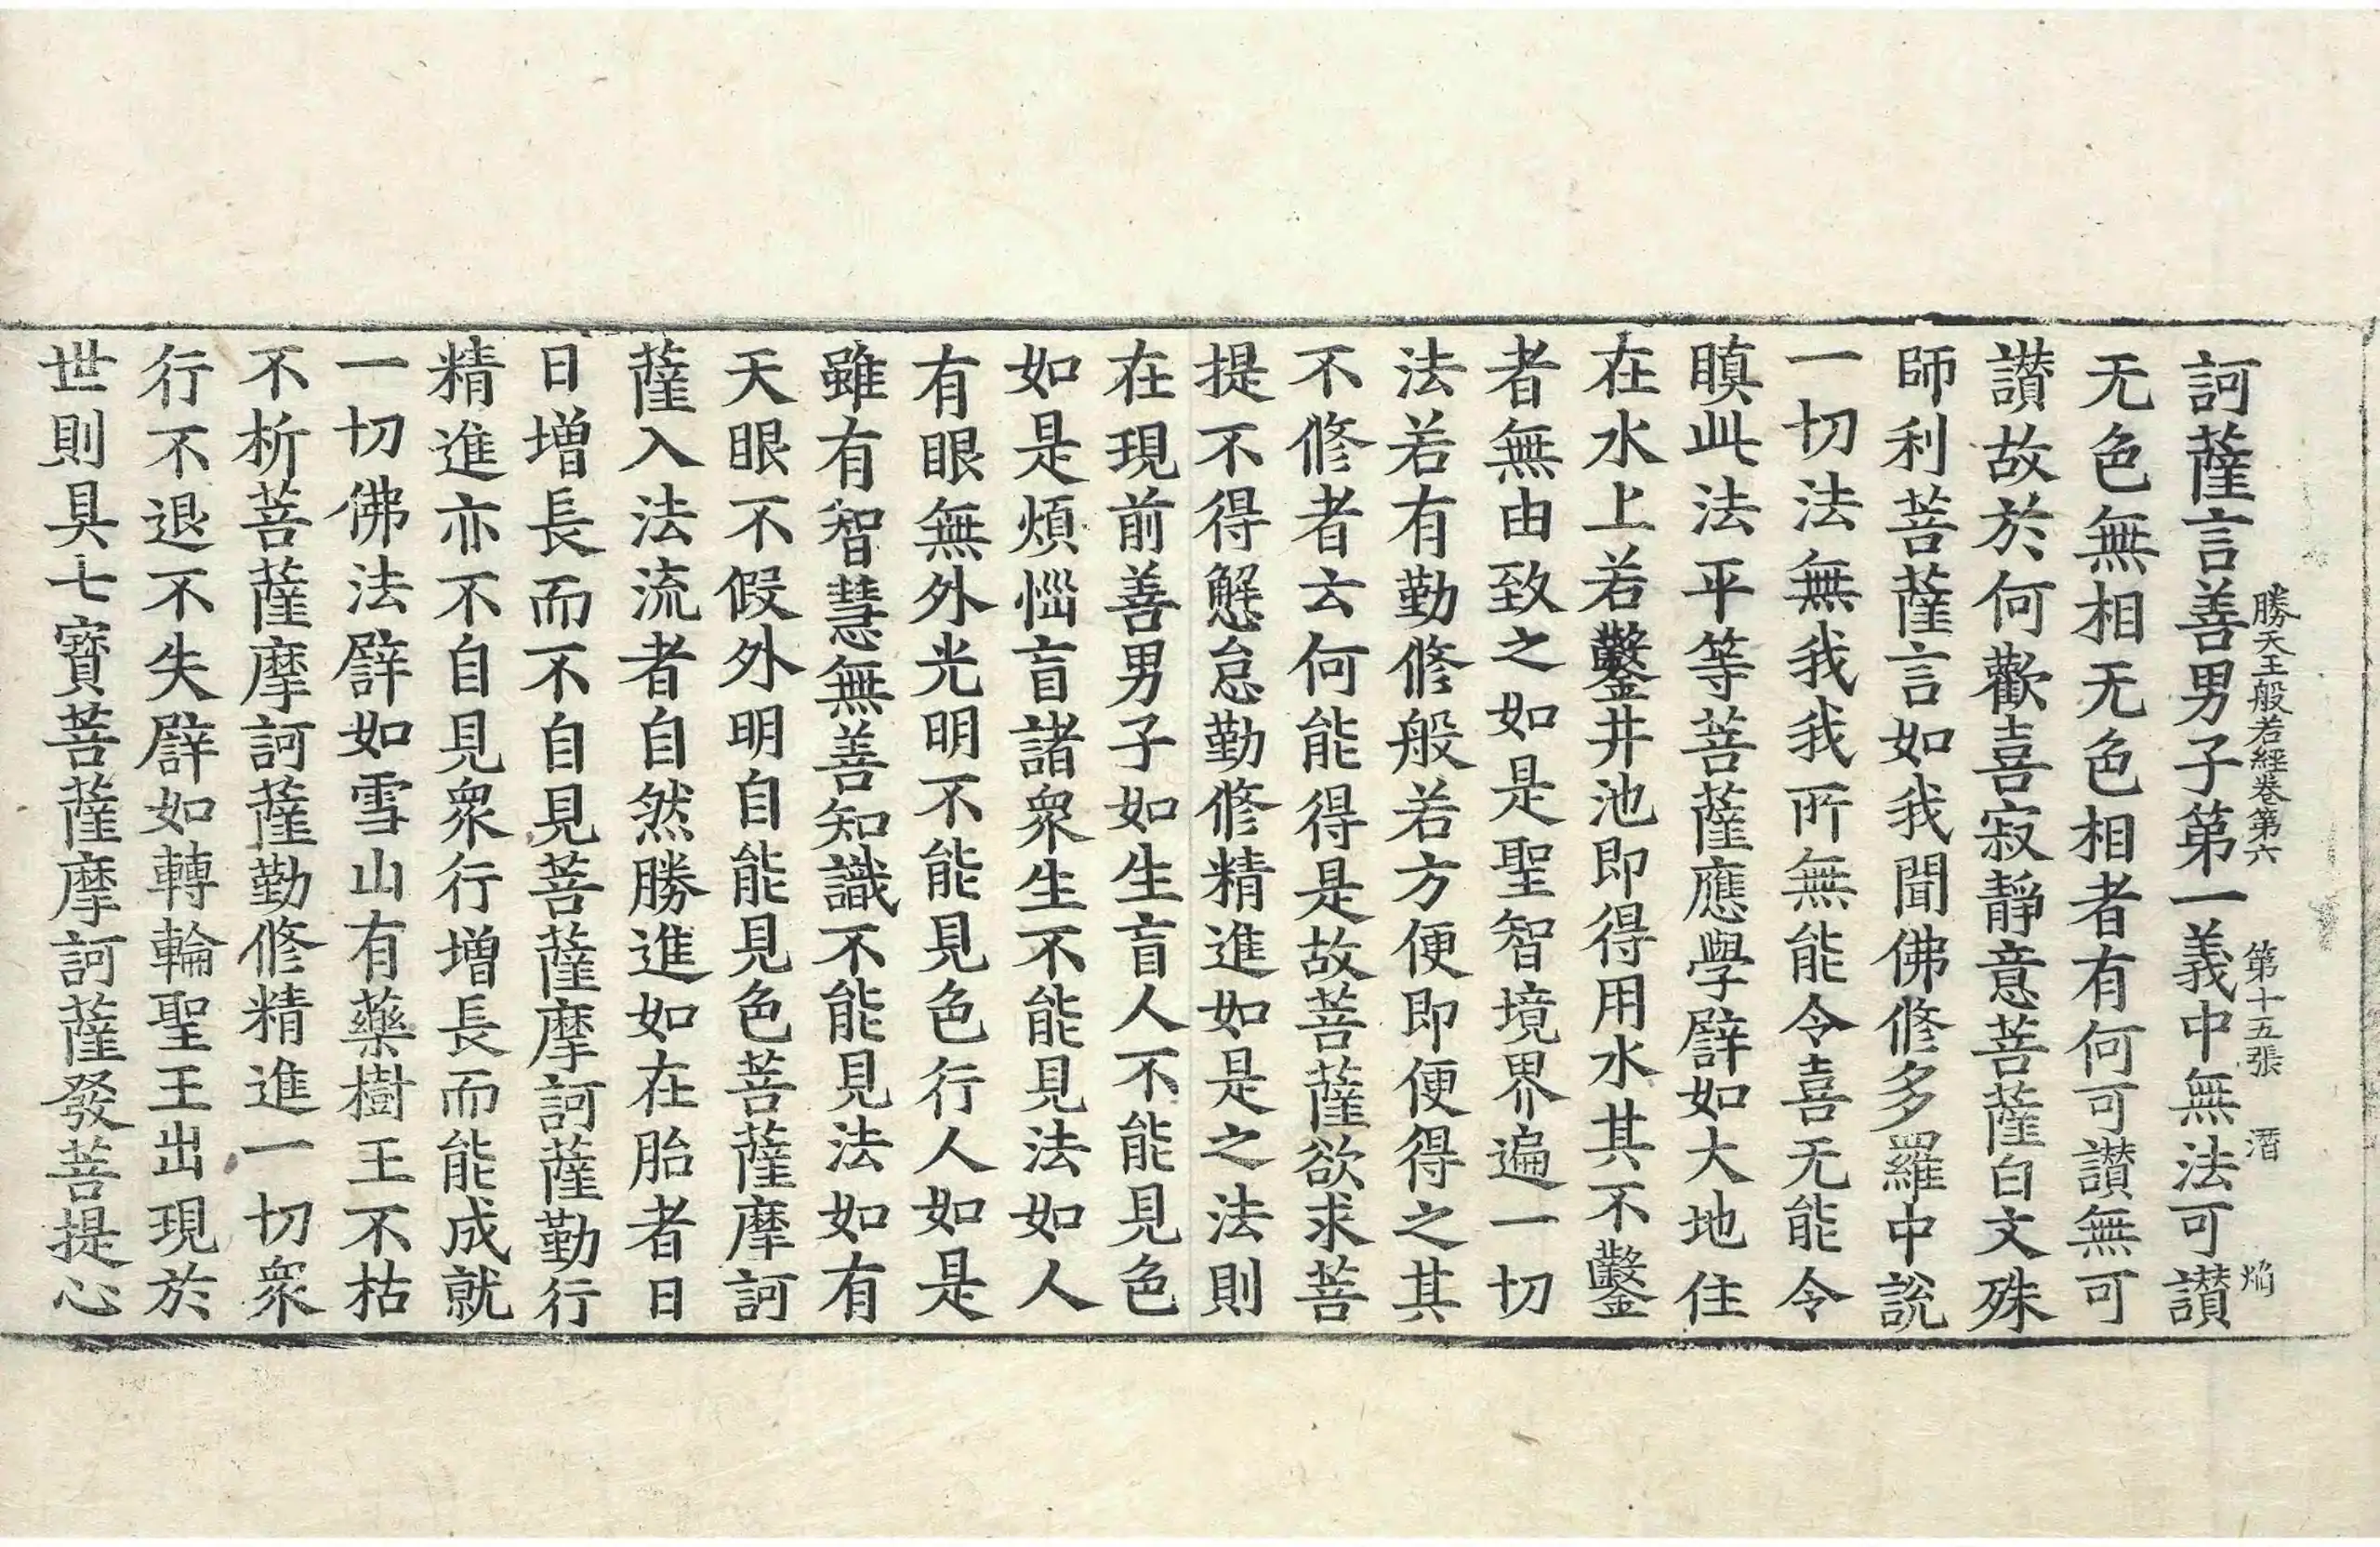 勝天王般若經卷第六 第十五張 㵎 焰
訶薩言善男子第一義中無法可讃
无色無相无色相者有何可讃無可
讃故於何歡喜寂靜意菩薩白文殊
師利菩薩言如我聞佛修多羅中說
一切法無我我所無能令喜无能令
瞋此法平等菩薩應學譬如大地住
在水上若鑿井池即得用水其不鑿
者無由致之如是聖智境界遍一切
法若有勤修般若方便即便得之其
不修者云何能得是故菩薩欲求菩
提不得懈怠勤修精進如是之法則
在現前善男子如生盲人不能見色
如是煩惱盲諸衆生不能見法如人
有眼無外光明不能見色行人如是
雖有智慧無善知識不能見法如有
天眼不假外明自能見色菩薩摩訶
薩入法流者自然勝進如在胎者日
日增長而不自見菩薩摩訶薩勤行
精進亦不自見衆行增長而能成就
一切佛法譬如雪山有藥樹王不枯
不析菩薩摩訶薩勤修精進一切衆
行不退不失譬如轉輪聖王出現於
世則具七寳菩薩摩訶薩發菩提心